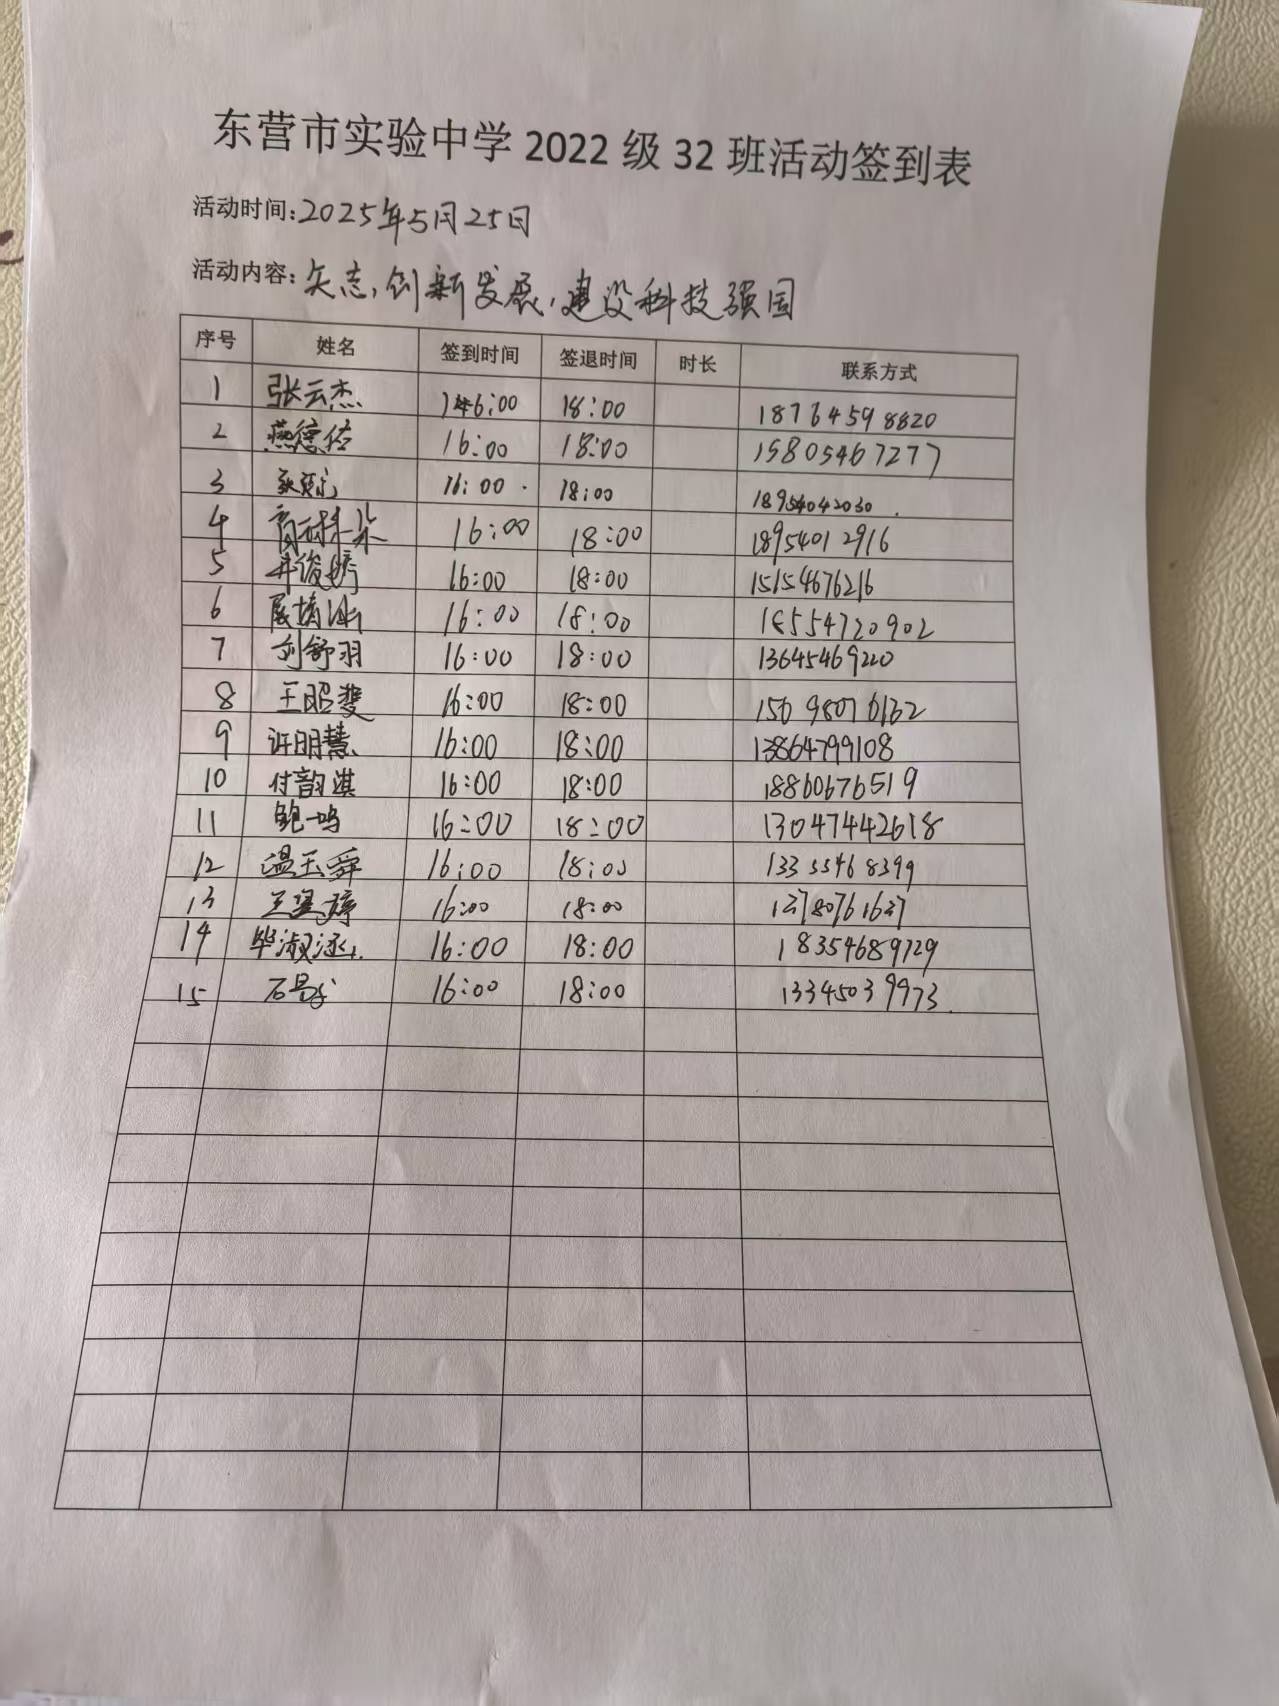 东营市实验中学 2022 级 32 班活动签到表
活动时间:2025年5月25日
活动内容:矢志,创新发展,建设科技强国
序号 姓名 签到时间 签退时间 时长 联系方式
1 张云杰 16:00 18:00 18764598820
2 燕德佑 16:00 18:00 15805467277
3 16:00 18:00 18954042030
4 16:00 18:00 18954012916
5 16:00 18:00 15154676216
6 16:00 18:00 16554720902
7 刘舒羽 16:00 18:00 13645469220
8 王昭斐 16:00 18:00
9 许明慧 16:00 18:00 13864799108
10 付韵淇 16:00 18:00 18860676519
11 鲍一鸣 16:00 18:00 13047442618
12 温玉舜 16:00 18:00 13355468399
13 16:00 18:00
14 毕淑涵 16:00 18:00 18354689729
15 16:00 18:00 13345039973